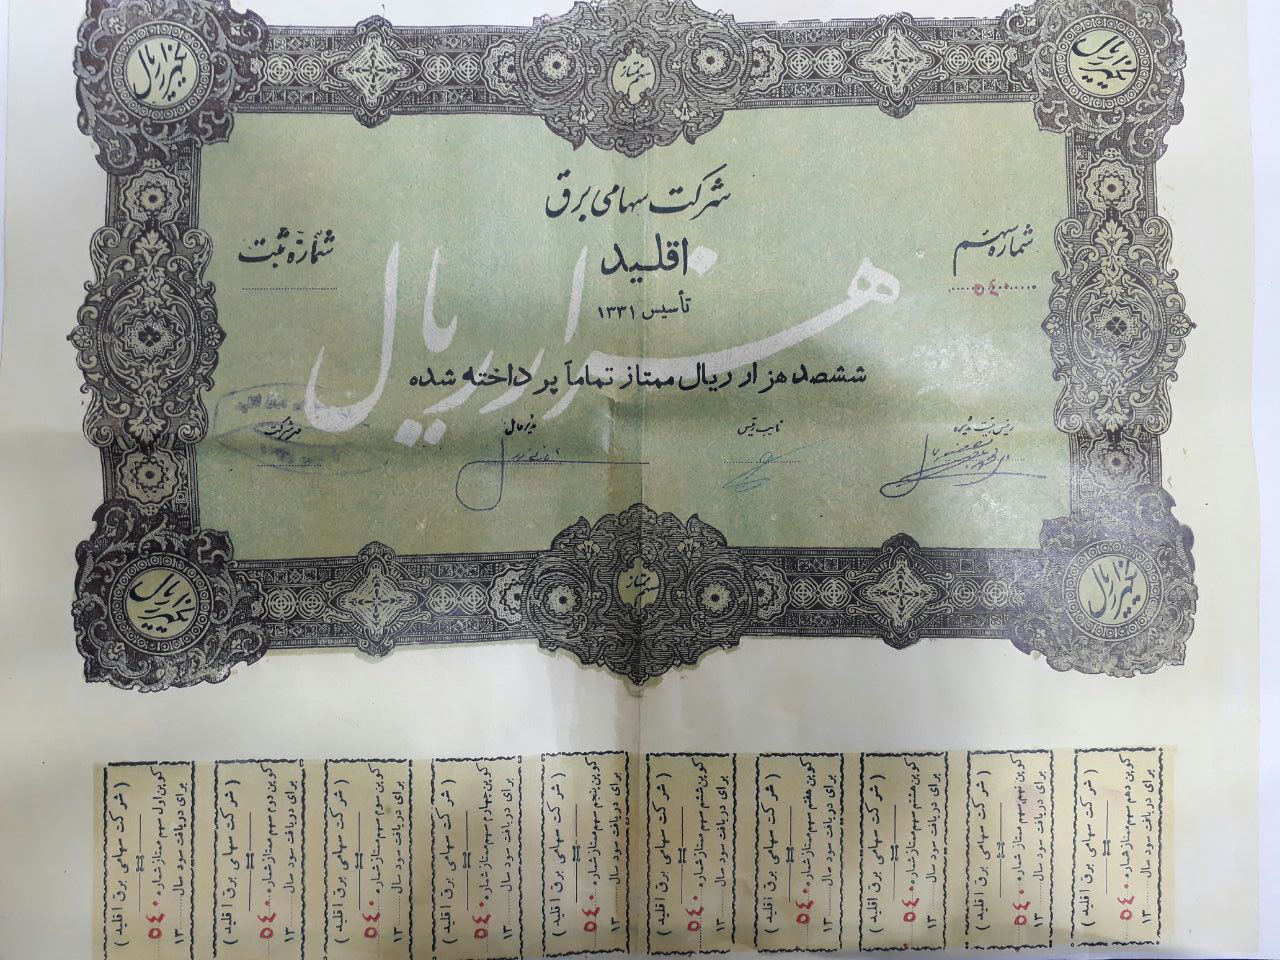 یکهزار ریال
ممتاز
یکهزار ریال
شرکت سهامی برق
اقلید
تأسیس ۱۳۳۱
شماره سهم
۵۴۰
شماره ثبت
هزار ریال
ششصد هزار ریال ممتاز تماماً پرداخته شده
رئیس هیئت مدیره
نایب رئیس
مدیرعامل
مهر شرکت
یکهزار ریال
ممتاز
یکهزار ریال
کوپن دهم سهم ممتاز شماره ۵۴۰
برای دریافت سود سال ۱۳
( شرکت سهامی برق اقلید )
کوپن نهم سهم ممتاز شماره ۵۴۰
برای دریافت سود سال ۱۳
( شرکت سهامی برق اقلید )
کوپن هشتم سهم ممتاز شماره ۵۴۰
برای دریافت سود سال ۱۳
( شرکت سهامی برق اقلید )
کوپن هفتم سهم ممتاز شماره ۵۴۰
برای دریافت سود سال ۱۳
( شرکت سهامی برق اقلید )
کوپن ششم سهم ممتاز شماره ۵۴۰
برای دریافت سود سال ۱۳
( شرکت سهامی برق اقلید )
کوپن پنجم سهم ممتاز شماره ۵۴۰
برای دریافت سود سال ۱۳
( شرکت سهامی برق اقلید )
کوپن چهارم سهم ممتاز شماره ۵۴۰
برای دریافت سود سال ۱۳
( شرکت سهامی برق اقلید )
کوپن سوم سهم ممتاز شماره ۵۴۰
برای دریافت سود سال ۱۳
( شرکت سهامی برق اقلید )
کوپن دوم سهم ممتاز شماره ۵۴۰
برای دریافت سود سال ۱۳
( شرکت سهامی برق اقلید )
کوپن اول سهم ممتاز شماره ۵۴۰
برای دریافت سود سال ۱۳
( شرکت سهامی برق اقلید )